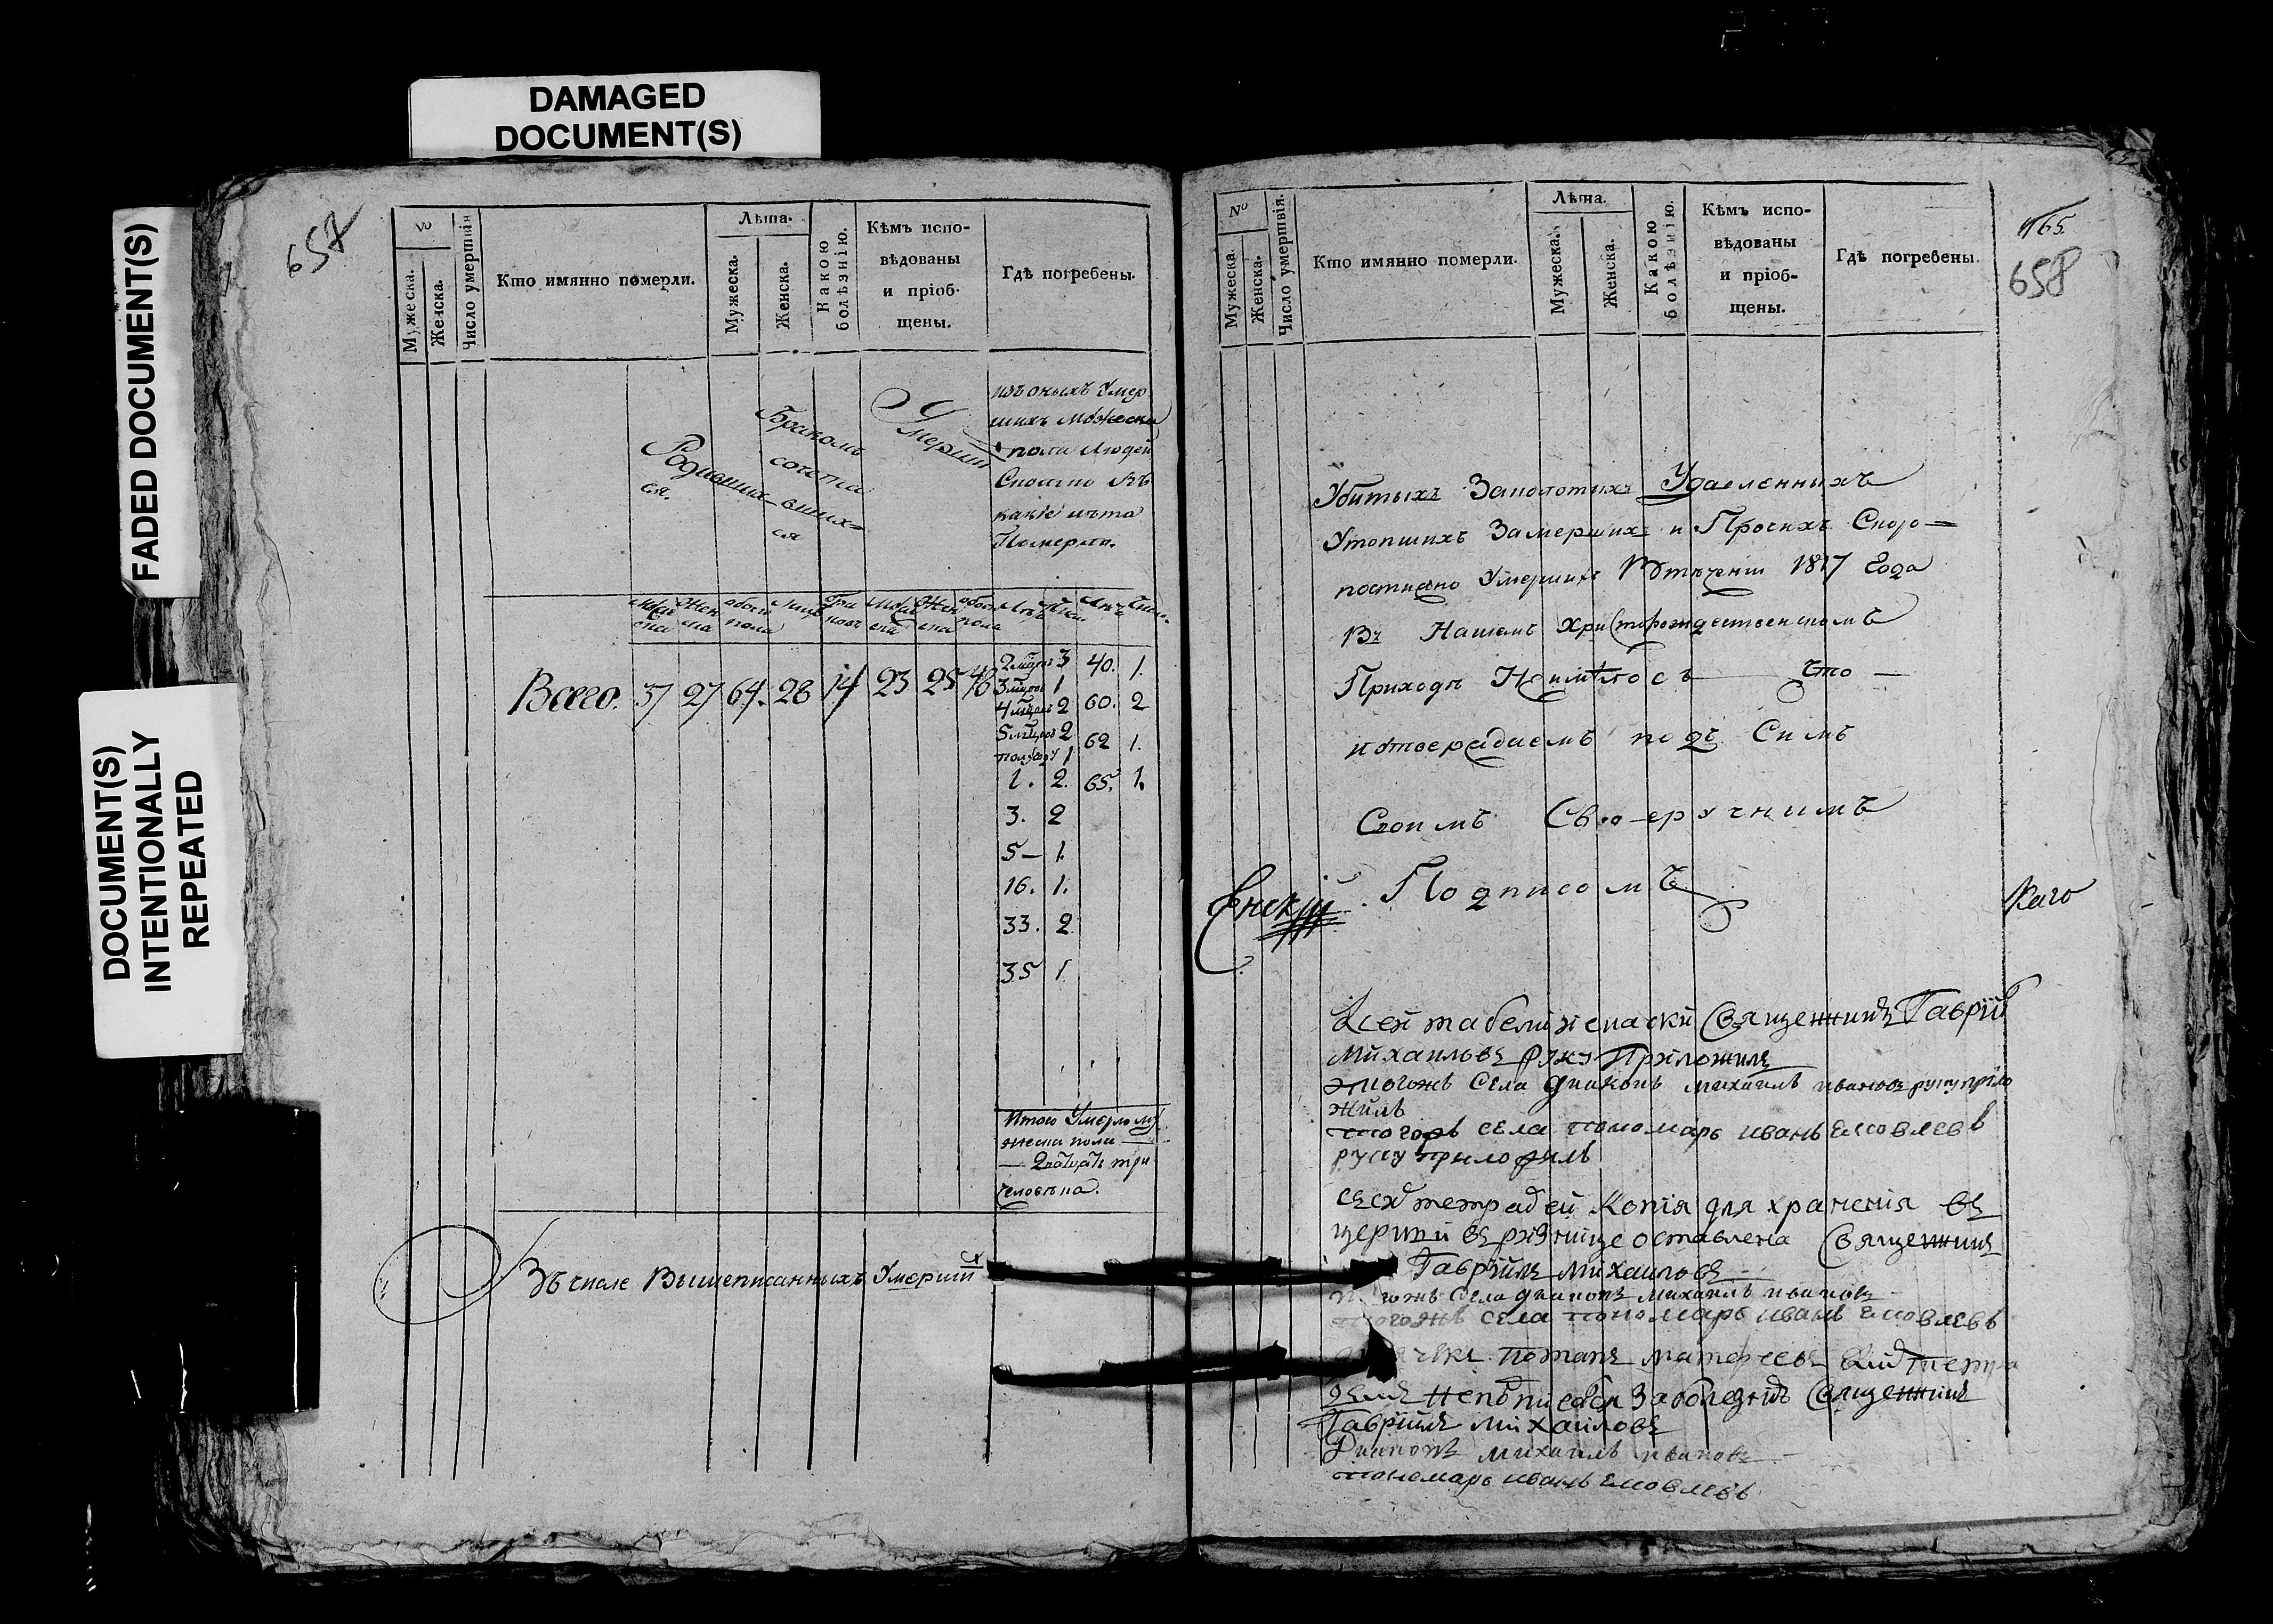 DAMAGED
DOCUMENT(S)
FADED DOCUMENT(S)
DOCUMENT(S)
INTENTIONALLY
REPEATED
657
№
Мужеска.
Женска.
Число умершвія
Кто имянно померли.
Лѣта.
Мужеска.
Женска.
Какою
болѣзнію.
Кѣмъ испо-
вѣдованы
и пріоб-
щены.
Гдѣ погребены.
Родивших
ся.
Бракомъ
сочета
вших=
ся
Умерши
изъ оныхъ Умер
шихъ Можеска
пола людей
Сколко Въ
какіе лѣта
Померло.
Всего. 37 27 64. 28 14 23 25 48
2 мцовъ 3 40. 1.
3 мцовъ 1
4 мцовъ 2 60. 2
5 мцовъ 2 62 1.
полугоду 1
1. 2. 65. 1.
3. 2
5 — 1.
16. 1.
33. 2.
35 1
Итого Умерло му
жеска пола —
— Дватцать три
человека.
Въ числе Вышеписанныхъ Умерши
№
Мужеска.
Женска.
Число умершвія.
Кто имянно померли.
Лѣта.
Мужеска.
Женска.
Какою
болѣзнію.
Кѣмъ испо-
вѣдованы
и пріоб-
щены.
Гдѣ погребены.
165.
658
Убитыхъ Заколотыхъ Удавленныхъ
Утопшихъ Замершихъ и Прочихъ Скоро=
постижно Умершихъ Втѣченіи 1817 Года
Въ Нашемъ Христорождественскомъ
Приходѣ Неимѣлось Что —
и Утверждаемъ подъ Симъ
Своимъ Своеручнымъ
Подписомъ
Енскій
Каго
Ксей табели и Священникъ Гавріилъ
Михаиловъ руку Приложилъ
тогожъ Села диаконъ михаилъ ивановъ руку прило
жилъ
тогожъ села пономарь иванъ Еяковлевъ
руку приложилъ
Ссей тетрадей Копія для храненія въ
церкви въ ризнице оставлена Священникъ
Гавріилъ Михаиловъ
тогожъ Села диаконъ михаилъ ивановъ
тогожъ села пономарь иванъ Еяковлевъ
потапъ матфеевъ тетра
неподписался Заболезнію Священникъ
Гавріилъ михаиловъ
Диаконъ михаилъ ивановъ
пономарь иванъ Еяковлевъ